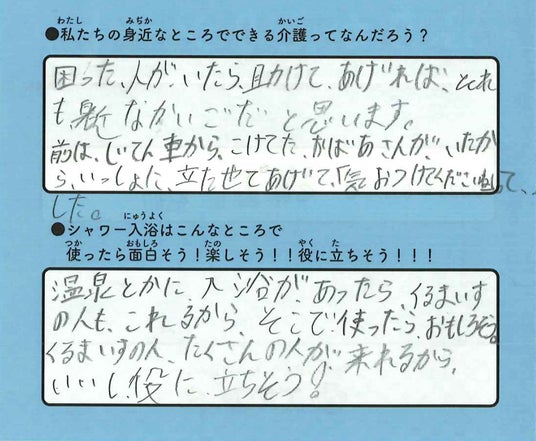 ●私たちの身近なところでできる介護ってなんだろう？
困った、人が、いたら、助けて、あげれば、とれ
も、身近なかいごだと思います。
前は、じてん車から、こけてた、おばあさんが、いたか
ら、いっしょに、立たせてあげいて、「気おつけてくださいね」って、
した。
●シャワー入浴はこんなところで
使ったら面白そう！楽しそう！！役に立ちそう！！！
温泉とかに、入浴が、あったら、くるまいす
の人も、これるから、そこで使ったら、おもしろそう。
くるまいすの人、たくさんの人が、来れるから、
いいし、役に、立ちそう！